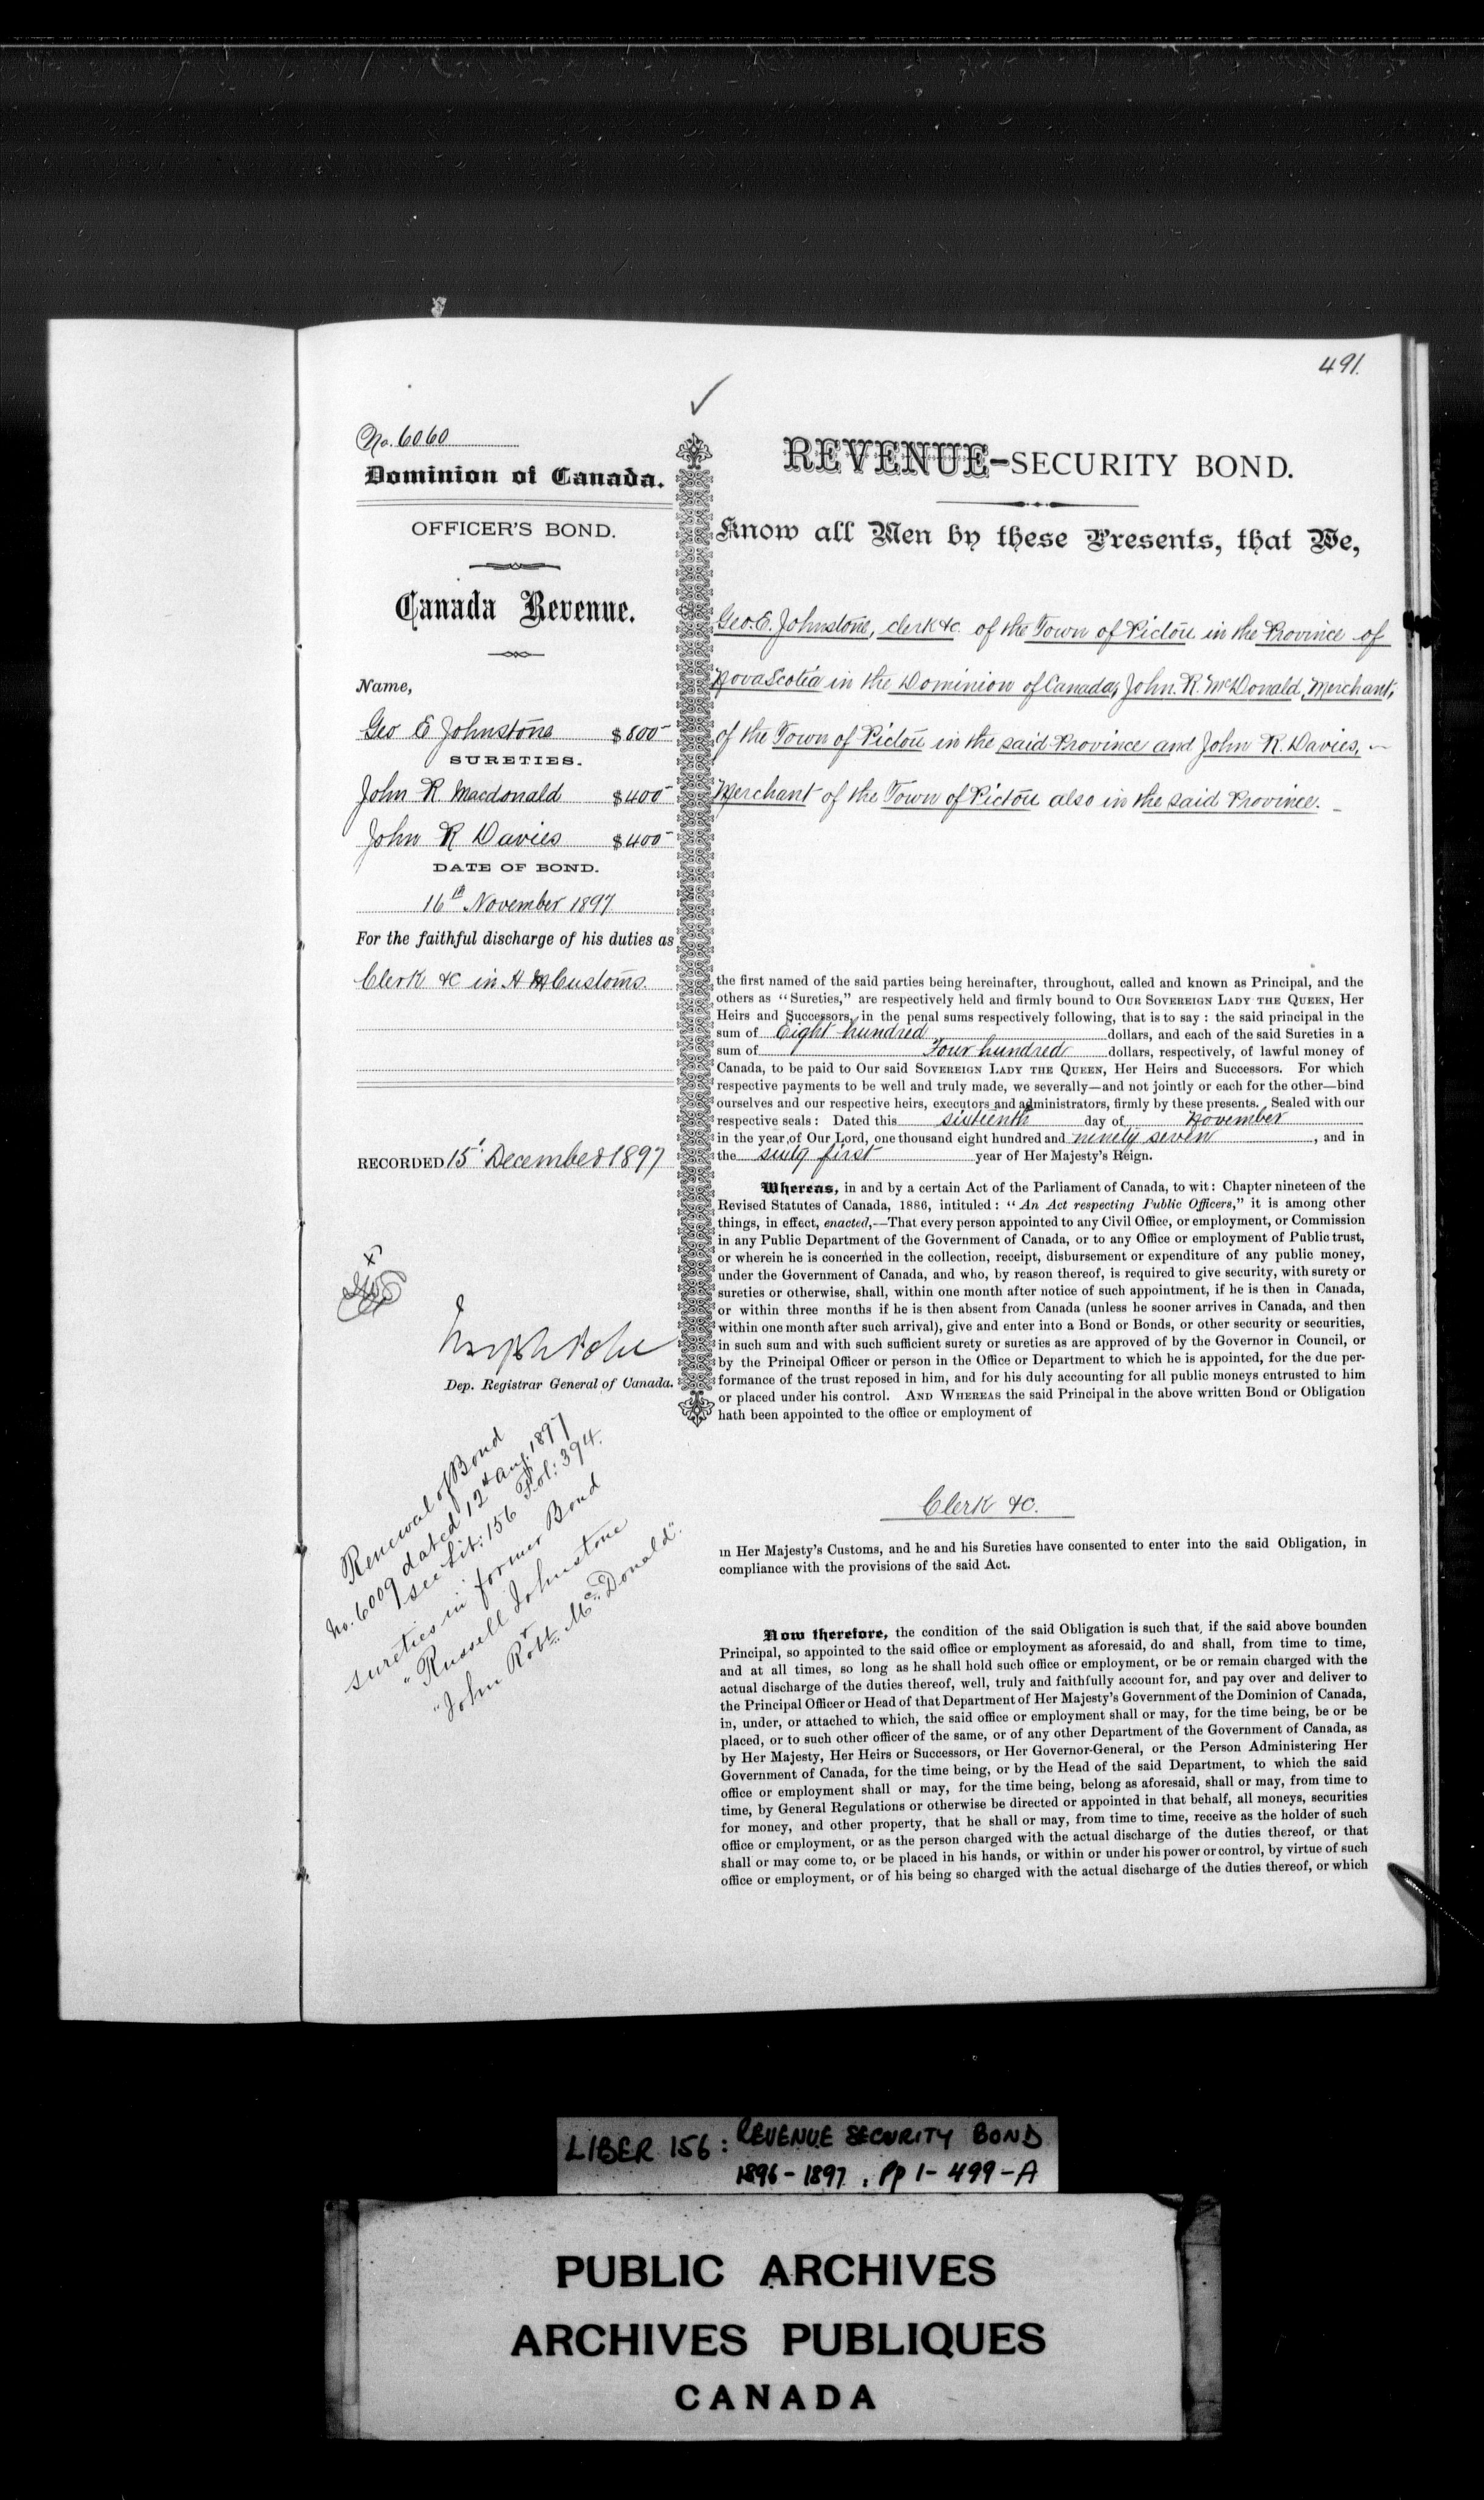 491.
No. 6060
Dominion of Canada.
OFFICER'S BOND.
Canada Revenue.
Name,
Geo E Johnstone $800
SURETIES.
John R Macdonald $400
John R Davies $400
DATE OF BOND.
16th November 1897
For the faithful discharge of his duties as
Clerk &c in H M Customs.
RECORDED 15' December 1897
Joseph Pope
Dep. Registrar General of Canada.
Renewal of Bond
No. 6009 dated 12th Aug. 1897
see Lib: 156 Fol: 394.
sureties in former Bond
"Russell Johnstone
"John Robt. McDonald".
REVENUE-SECURITY BOND.
Know all Men by these Presents, that We,
Geo. E. Johnstone, clerk &c. of the Town of Pictou in the Province of
Nova Scotia in the Dominion of Canada, John. R. McDonald, Merchant,
of the Town of Pictou in the said Province and John R. Davies,
Merchant of the Town of Pictou also in the said Province.
the first named of the said parties being hereinafter, throughout, called and known as Principal, and the
others as "Sureties," are respectively held and firmly bound to OUR SOVEREIGN LADY THE QUEEN, Her
Heirs and Successors, in the penal sums respectively following, that is to say : the said principal in the
sum of Eight hundred dollars, and each of the said Sureties in a
sum of Four hundred dollars, respectively, of lawful money of
Canada, to be paid to Our said SOVEREIGN LADY THE QUEEN, Her Heirs and Successors. For which
respective payments to be well and truly made, we severally—and not jointly or each for the other—bind
ourselves and our respective heirs, executors and administrators, firmly by these presents. Sealed with our
respective seals : Dated this sixteenth day of November
in the year of Our Lord, one thousand eight hundred and ninety seven, and in
the sixty first year of Her Majesty's Reign.
Whereas, in and by a certain Act of the Parliament of Canada, to wit : Chapter nineteen of the
Revised Statutes of Canada, 1886, intituled : "An Act respecting Public Officers," it is among other
things, in effect, enacted,—That every person appointed to any Civil Office, or employment, or Commission
in any Public Department of the Government of Canada, or to any Office or employment of Public trust,
or wherein he is concerned in the collection, receipt, disbursement or expenditure of any public money,
under the Government of Canada, and who, by reason thereof, is required to give security, with surety or
sureties or otherwise, shall, within one month after notice of such appointment, if he is then in Canada,
or within three months if he is then absent from Canada (unless he sooner arrives in Canada, and then
within one month after such arrival), give and enter into a Bond or Bonds, or other security or securities,
in such sum and with such sufficient surety or sureties as are approved of by the Governor in Council, or
by the Principal Officer or person in the Office or Department to which he is appointed, for the due per-
formance of the trust reposed in him, and for his duly accounting for all public moneys entrusted to him
or placed under his control. AND WHEREAS the said Principal in the above written Bond or Obligation
hath been appointed to the office or employment of
Clerk &c.
in Her Majesty's Customs, and he and his Sureties have consented to enter into the said Obligation, in
compliance with the provisions of the said Act.
Now therefore, the condition of the said Obligation is such that, if the said above bounden
Principal, so appointed to the said office or employment as aforesaid, do and shall, from time to time,
and at all times, so long as he shall hold such office or employment, or be or remain charged with the
actual discharge of the duties thereof, well, truly and faithfully account for, and pay over and deliver to
the Principal Officer or Head of that Department of Her Majesty's Government of the Dominion of Canada,
in, under, or attached to which, the said office or employment shall or may, for the time being, be or be
placed, or to such other officer of the same, or of any other Department of the Government of Canada, as
by Her Majesty, Her Heirs or Successors, or Her Governor-General, or the Person Administering Her
Government of Canada, for the time being, or by the Head of the said Department, to which the said
office or employment shall or may, for the time being, belong as aforesaid, shall or may, from time to
time, by General Regulations or otherwise be directed or appointed in that behalf, all moneys, securities
for money, and other property, that he shall or may, from time to time, receive as the holder of such
office or employment, or as the person charged with the actual discharge of the duties thereof, or that
shall or may come to, or be placed in his hands, or within or under his power or control, by virtue of such
office or employment, or of his being so charged with the actual discharge of the duties thereof, or which
LIBER 156: REVENUE SECURITY BOND
1896-1897, Pp 1-499-A
PUBLIC ARCHIVES
ARCHIVES PUBLIQUES
CANADA